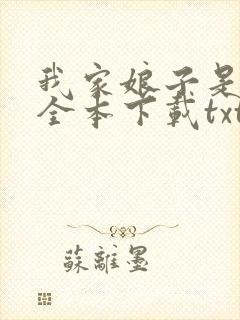 我家娘子是
全本下載txt
蘇離墨